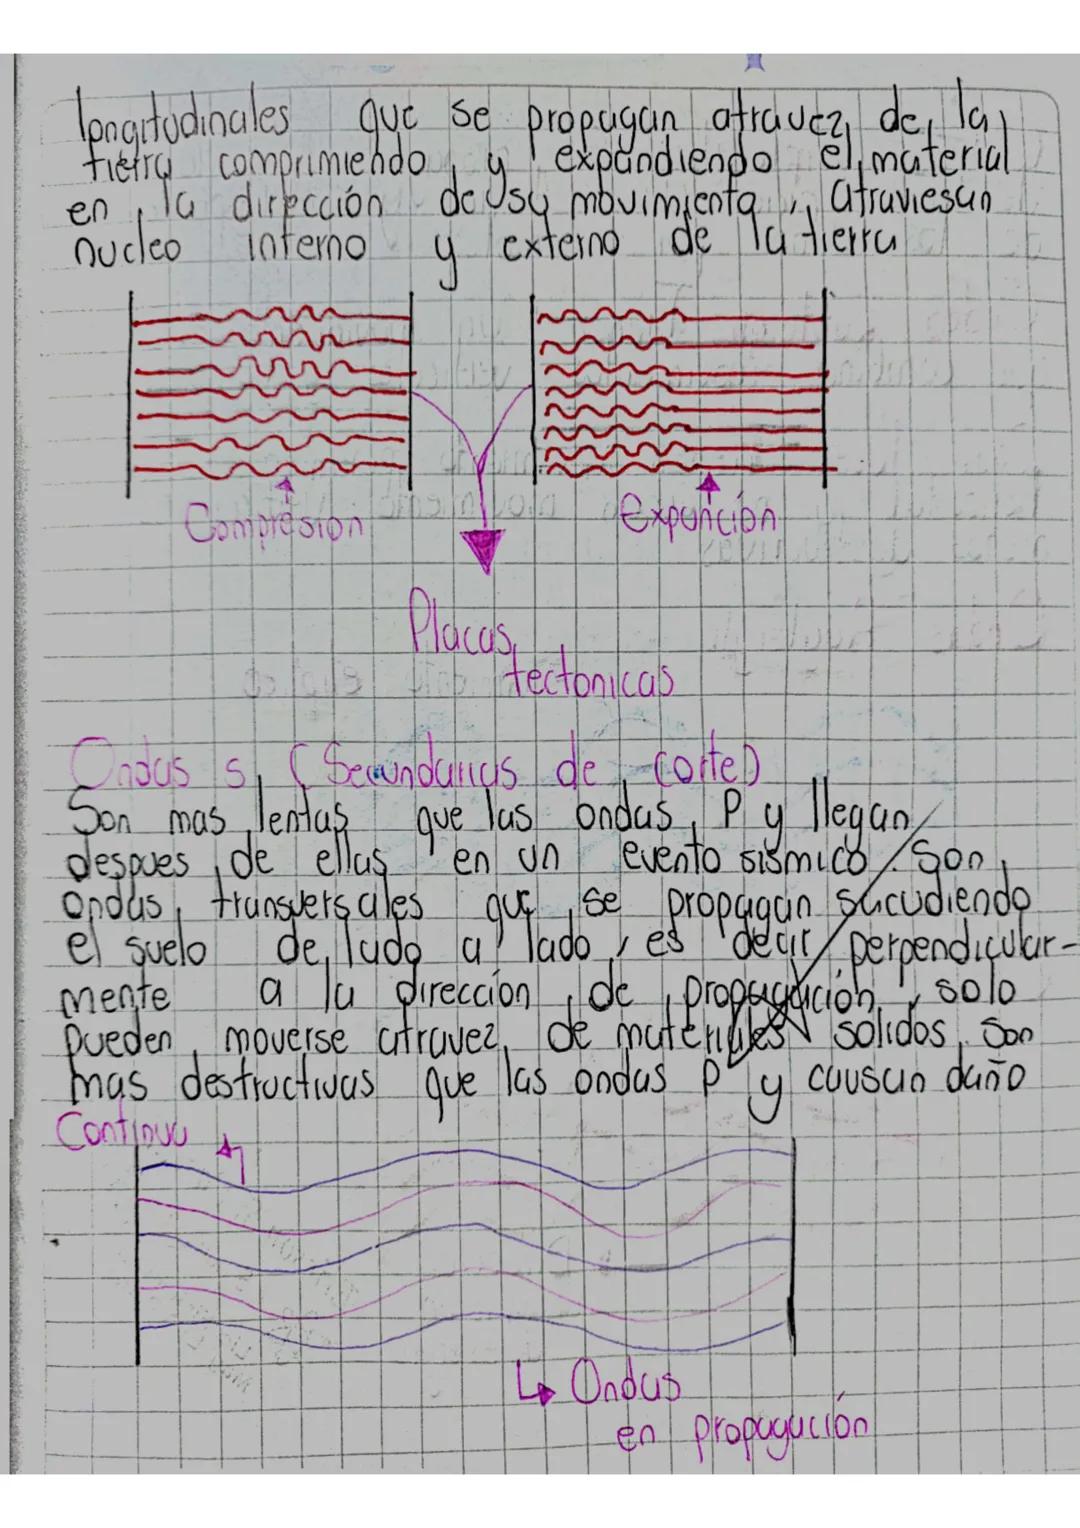 longitudinales que se propagan atravez de la
tierra comprimiendo y expandiendo el material
en la dirección de usu movimiento, atraviesan
nucleo interno y externo de la tierra
Compresion
Expanción
Placas
tectonicas
Ondas s (Secundarias de corte)
Son mas lentas que las ondas P y llegan
despues de ellas en un evento sismico. Son
ondas transversales que se propagan sacudiendo
el suelo de lado a lado, es decir perpendicular-
mente a la dirección de propagación, solo
pueden moverse atravez de materiales solidos. Son
mas destructivas que las ondas P y causan daño
Continua
Ondas
en propagación